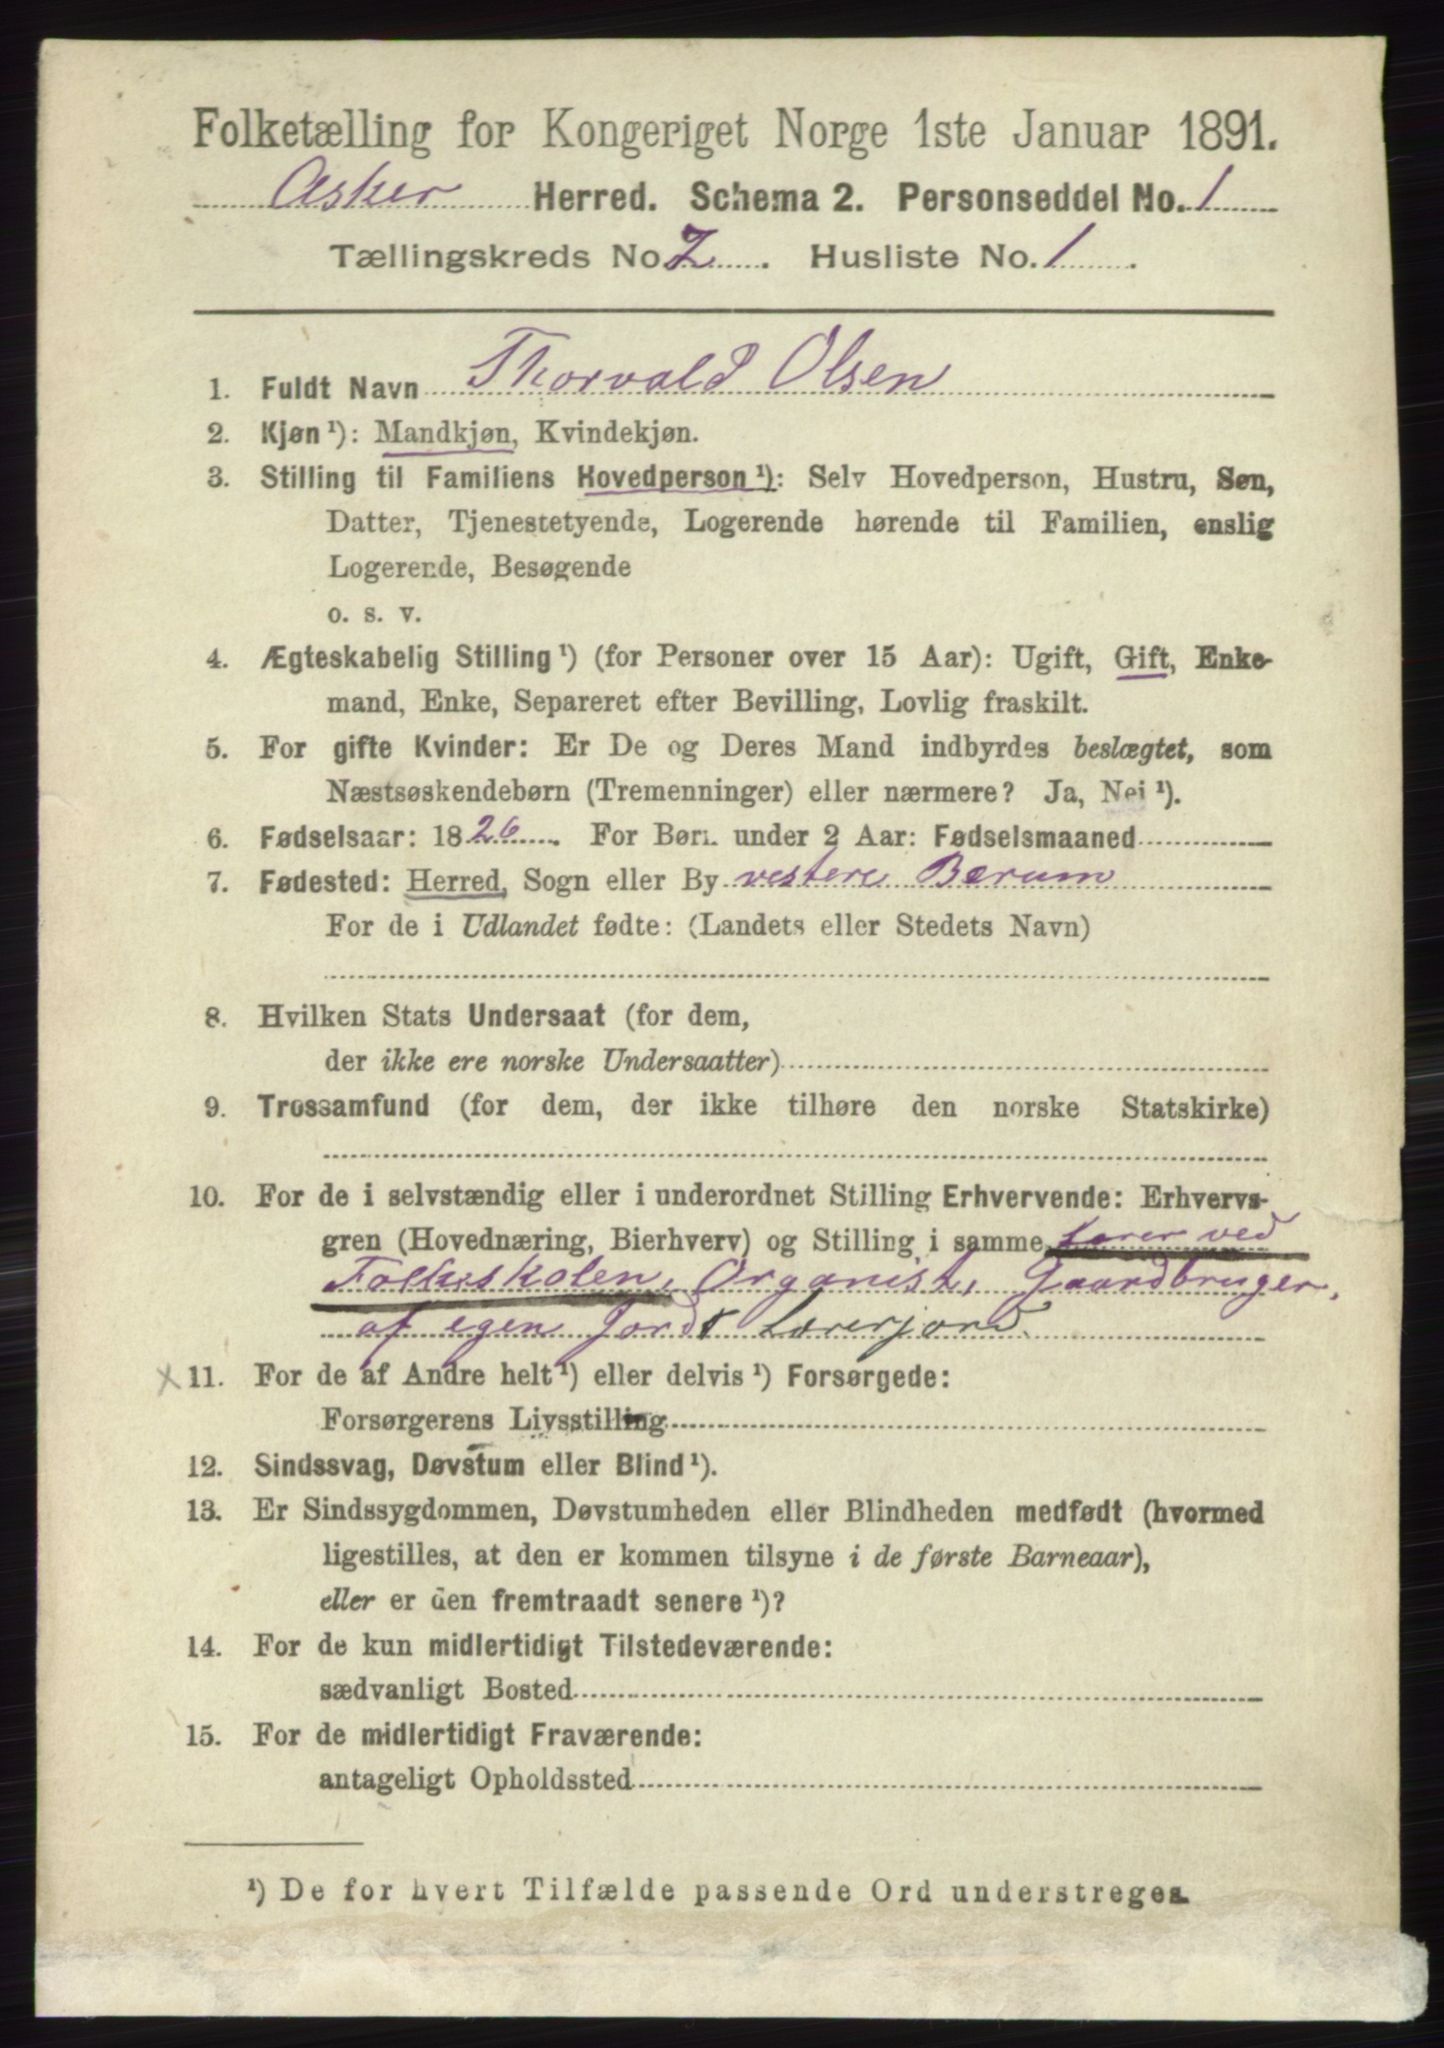 Folketælling for Kongeriget Norge 1ste Januar 1891.
Asker Herred. Schema 2. Personseddel No. 1
Tællingskreds No. 2. Husliste No. 1.
1. Fuldt Navn Thorvald Olsen
2. Kjøn ¹): Mandkjøn, Kvindekjøn.
3. Stilling til Familiens Hovedperson ¹): Selv Hovedperson, Hustru, Søn,
Datter, Tjenestetyende, Logerende hørende til Familien, enslig
Logerende, Besøgende
o. s. v.
4. Ægteskabelig Stilling ¹) (for Personer over 15 Aar): Ugift, Gift, Enke-
mand, Enke, Separeret efter Bevilling, Lovlig fraskilt.
5. For gifte Kvinder: Er De og Deres Mand indbyrdes beslægtet, som
Næstsøskendebørn (Tremenninger) eller nærmere? Ja, Nei ¹).
6. Fødselsaar: 1826. For Børn under 2 Aar: Fødselsmaaned
7. Fødested: Herred, Sogn eller By vestere Bærum
For de i Udlandet fødte: (Landets eller Stedets Navn)
8. Hvilken Stats Undersaat (for dem,
der ikke ere norske Undersaatter)
9. Trossamfund (for dem, der ikke tilhøre den norske Statskirke)
10. For de i selvstændig eller i underordnet Stilling Erhvervende: Erhvervs-
gren (Hovednæring, Bierhverv) og Stilling i samme Lærer ved
Folkeskolen, Organist, Gaardbruger,
af egen Jord & Lærerjord
x 11. For de af Andre helt ¹) eller delvis ¹) Forsørgede:
Forsørgerens Livsstilling
12. Sindssvag, Døvstum eller Blind ¹).
13. Er Sindssygdommen, Døvstumheden eller Blindheden medfødt (hvormed
ligestilles, at den er kommen tilsyne i de første Barneaar),
eller er den fremtraadt senere ¹)?
14. For de kun midlertidigt Tilstedeværende:
sædvanligt Bosted
15. For de midlertidigt Fraværende:
antageligt Opholdssted
¹) De for hvert Tilfælde passende Ord understreges.